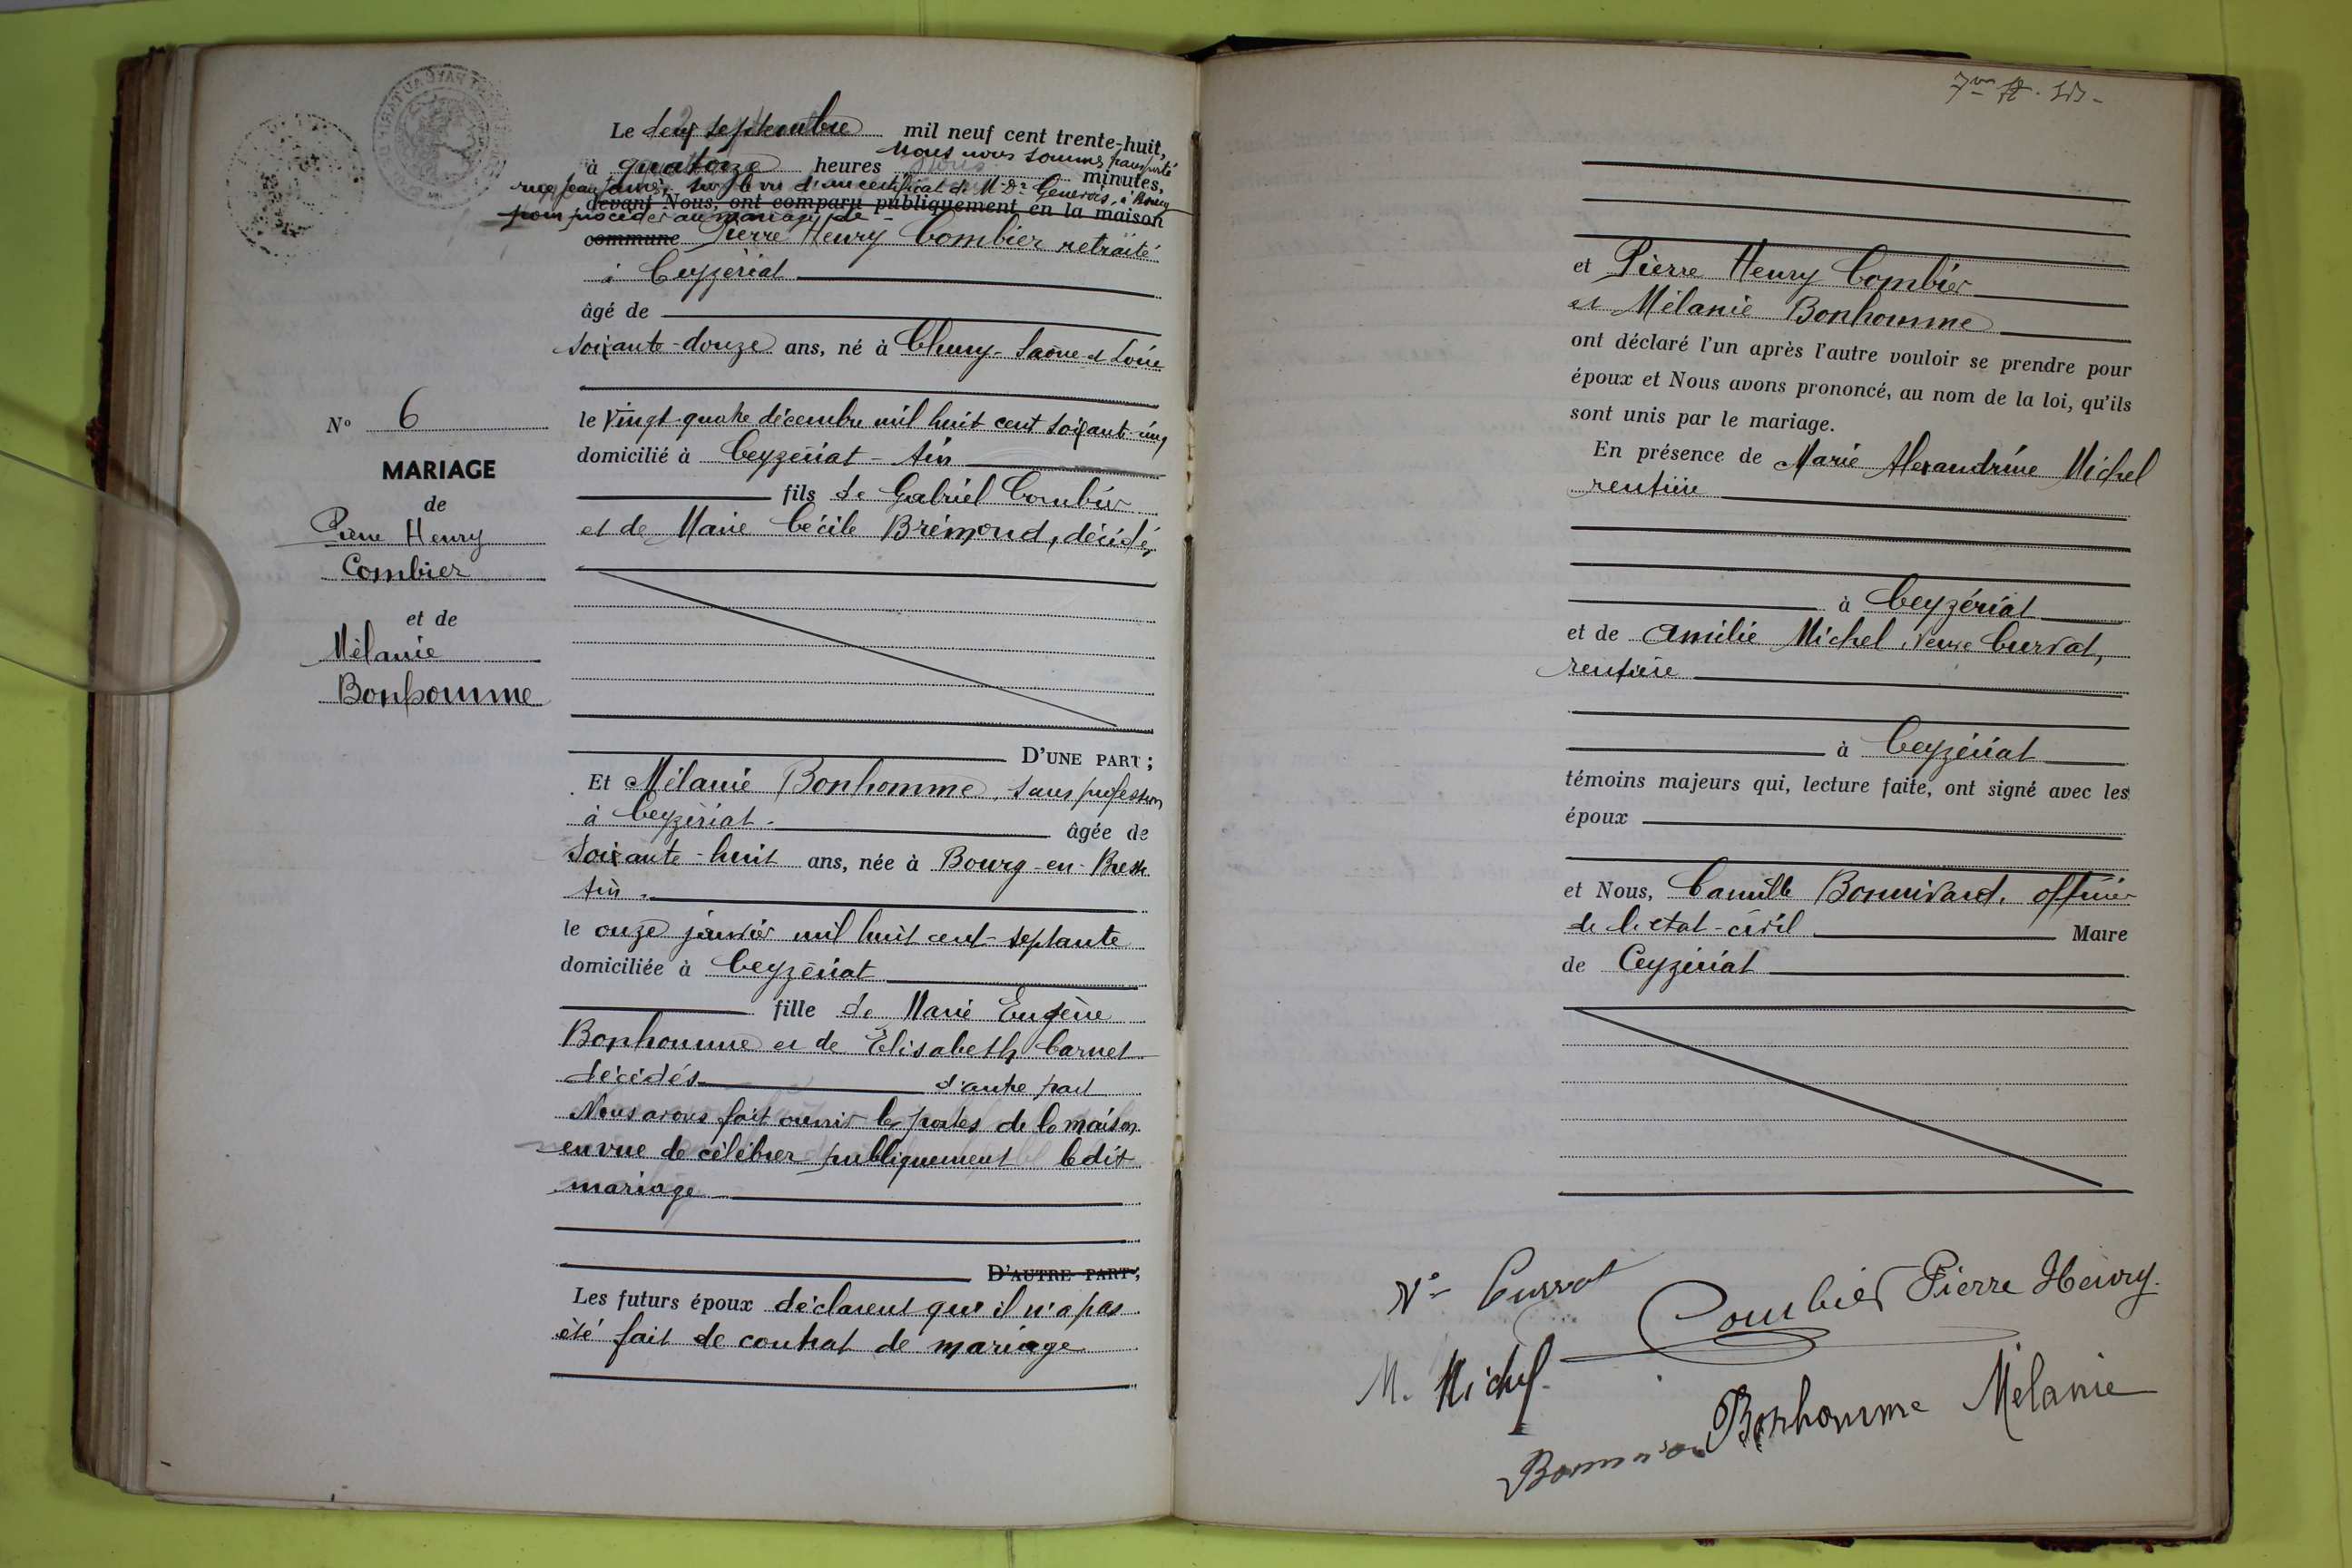 Le deux septembre mil neuf cent trente-huit,
à quatorze heures minutes,
Nous nous sommes transporté
rue Jean Jaurès, sur le vu d'un certificat de Mr Dr Genevois, à Bourg
devant Nous, ont comparu publiquement en la maison
pour procéder au mariage de -
commune Pierre Henry Combier retraité
à Ceyzériat
âgé de
soixante-douze ans, né à Cluny - Saône et Loire
le vingt-quatre décembre mil huit cent soixante-cinq
domicilié à Ceyzériat - Ain
fils de Gabriel Combier
et de Marie Cécile Brémond, décédés
N° 6
MARIAGE
de
Pierre Henry
Combier
et de
Mélanie
Bonhomme
D'UNE PART ;
Et Mélanie Bonhomme, sans profession
à Ceyzériat - âgée de
soixante-huit ans, née à Bourg-en-Bresse
Ain -
le onze janvier mil huit cent septante
domiciliée à Ceyzériat
fille de Marie Eugène
Bonhomme et de Élisabeth Carnet
décédés d'autre part
Nous avons fait ouvrir les portes de la maison
en vue de célébrer publiquement ledit
mariage
D'AUTRE PART ;
Les futurs époux déclarent que il n'a pas
été fait de contrat de mariage
et Pierre Henry Combier
et Mélanie Bonhomme
ont déclaré l'un après l'autre vouloir se prendre pour
époux et Nous avons prononcé, au nom de la loi, qu'ils
sont unis par le mariage.
En présence de Marie Alexandrine Michel
rentière
à Ceyzériat
et de Amélie Michel, veuve Curvat,
rentière
à Ceyzériat
témoins majeurs qui, lecture faite, ont signé avec les
époux
et Nous, Camille Bonnivard, officier
de l'état-civil Maire
de Ceyzériat
Ve Curvat
Combier Pierre Henry.
M. Michel
Bonhomme Mélanie